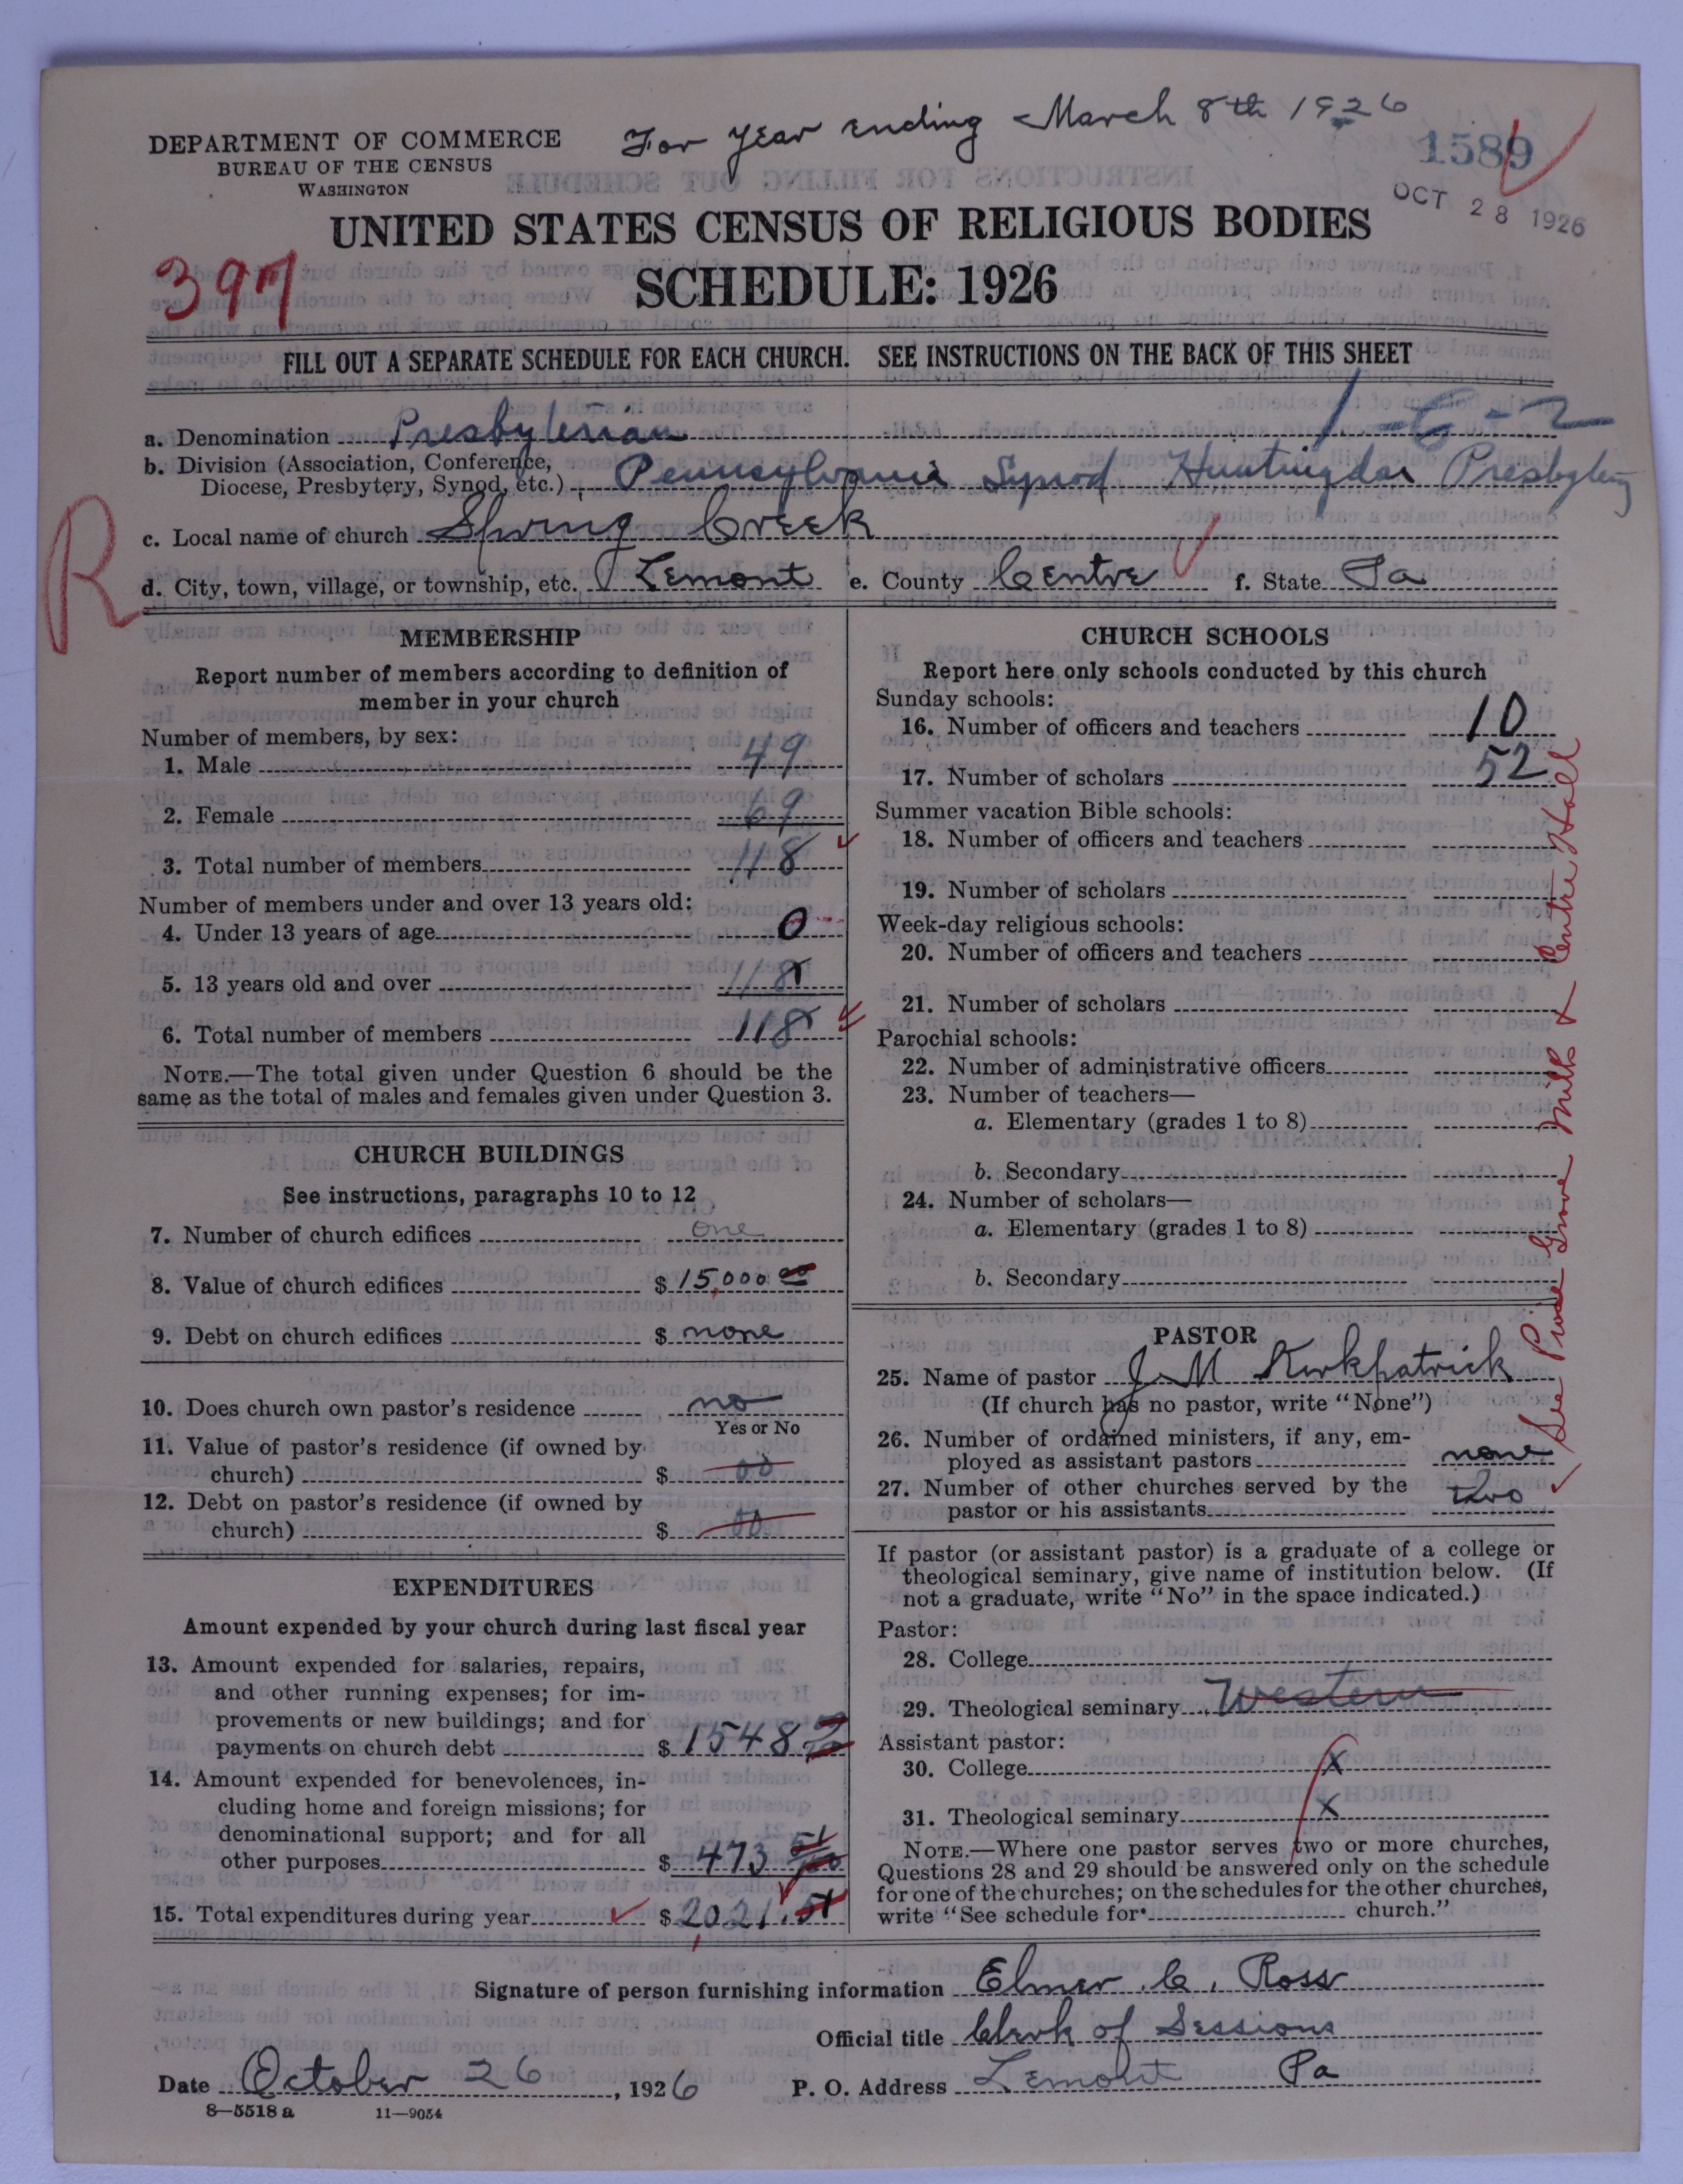 For Year Ending March 8th 1926
DEPARTMENT OF COMMERCE
BUREAU OF THE CENSUS
WASHINGTON
1589
OCT 28 1926
UNITED STATES CENSUS OF RELIGIOUS BODIES
SCHEDULE: 1926
397
FILL OUT A SEPARATE SCHEDULE FOR EACH CHURCH. SEE INSTRUCTIONS ON THE BACK OF THIS SHEET
1-6-2
a. Denomination Presbyterian
b. Division (Association, Conference,
Diocese, Presbytery, Synod, etc.) Pennsylvania Synod Huntingdon Presbytery
R
c. Local name of church Spring Creek
d. City, town, village, or township, etc. Lemont e. County Centre f. State Pa
MEMBERSHIP
Report number of members according to definition of
member in your church
Number of members, by sex:
1. Male 49
2. Female 69
3. Total number of members 118
Number of members under and over 13 years old:
4. Under 13 years of age 0
5. 13 years old and over 118
6. Total number of members 118
NOTE.—The total given under Question 6 should be the
same as the total of males and females given under Question 3.
CHURCH BUILDINGS
See instructions, paragraphs 10 to 12
7. Number of church edifices one
8. Value of church edifices $ 15,000 00
9. Debt on church edifices $ none
10. Does church own pastor's residence no
Yes or No
11. Value of pastor's residence (if owned by
church) $ 00
12. Debt on pastor's residence (if owned by
church) $ 00
EXPENDITURES
Amount expended by your church during last fiscal year
13. Amount expended for salaries, repairs,
and other running expenses; for im-
provements or new buildings; and for
payments on church debt $ 1548
14. Amount expended for benevolences, in-
cluding home and foreign missions; for
denominational support; and for all
other purposes $ 473 51/100
15. Total expenditures during year $ 2,021.51
CHURCH SCHOOLS
Report here only schools conducted by this church
Sunday schools:
16. Number of officers and teachers 10
17. Number of scholars 52
Summer vacation Bible schools:
18. Number of officers and teachers
19. Number of scholars
Week-day religious schools:
20. Number of officers and teachers
21. Number of scholars
Parochial schools:
22. Number of administrative officers
23. Number of teachers—
a. Elementary (grades 1 to 8)
b. Secondary
24. Number of scholars—
a. Elementary (grades 1 to 8)
b. Secondary
PASTOR
25. Name of pastor J. M Kirkpatrick
(If church has no pastor, write "None")
26. Number of ordained ministers, if any, em-
ployed as assistant pastors none
27. Number of other churches served by the
pastor or his assistants two
See Pine Grove Mills & Centre Hall
If pastor (or assistant pastor) is a graduate of a college or
theological seminary, give name of institution below. (If
not a graduate, write "No" in the space indicated.)
Pastor:
28. College
29. Theological seminary Western
Assistant pastor:
30. College X
31. Theological seminary X
NOTE.—Where one pastor serves two or more churches,
Questions 28 and 29 should be answered only on the schedule
for one of the churches; on the schedules for the other churches,
write "See schedule for church."
Signature of person furnishing information Elmer C. Ross
Official title Clerk of Sessions
Date October 26, 1926 P. O. Address Lemont Pa
8—5518 a 11—9054